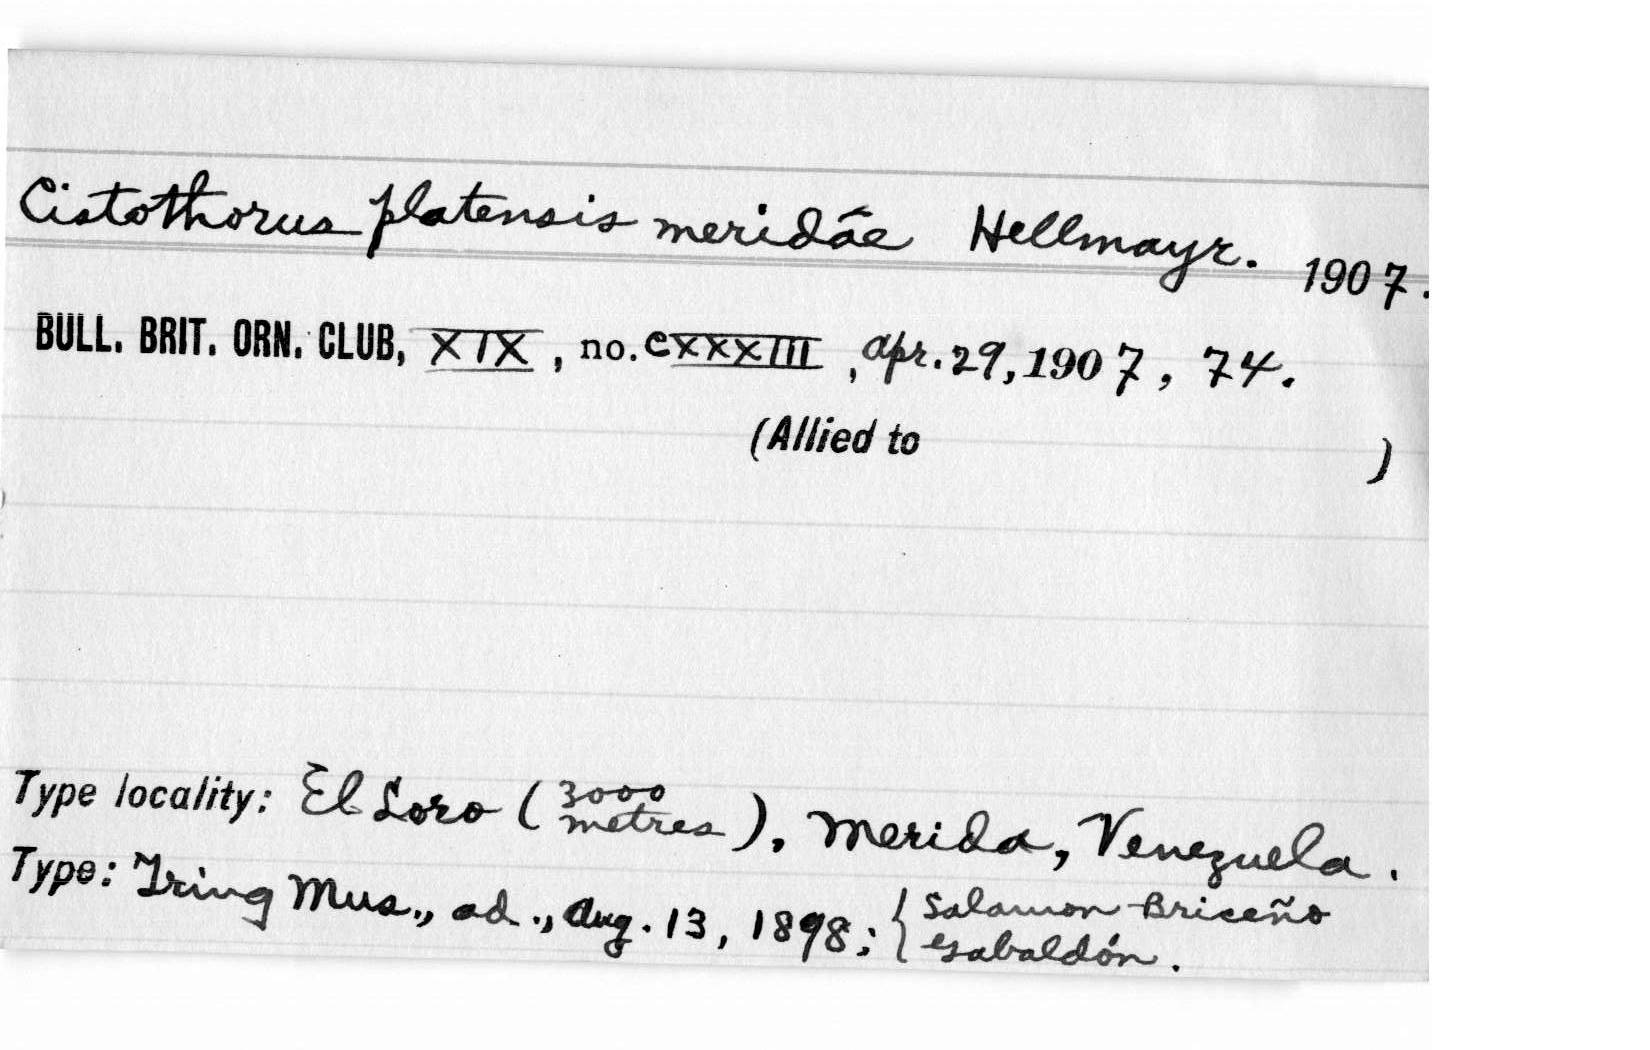 Cistothorus platensis meridáe Hellmayr. 1907.
BULL. BRIT. ORN. CLUB, XIX, no. cxxxiii, Apr. 29, 1907, 74.
(Allied to )
Type locality: El Loro (3000 metres), Merida, Venezuela.
Type: Tring Mus., ad., Aug. 13, 1898; { Salamon Briceño
Gabaldón.